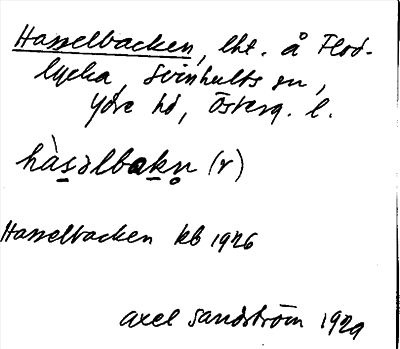 Hasselbacken, lht. å Flod-
lycka, Svinhults sn,
Ydre hd, Österg. l.
hàsəlbakn̥ (r)
Hasselbacken kb 1926
Axel Sandström 1929